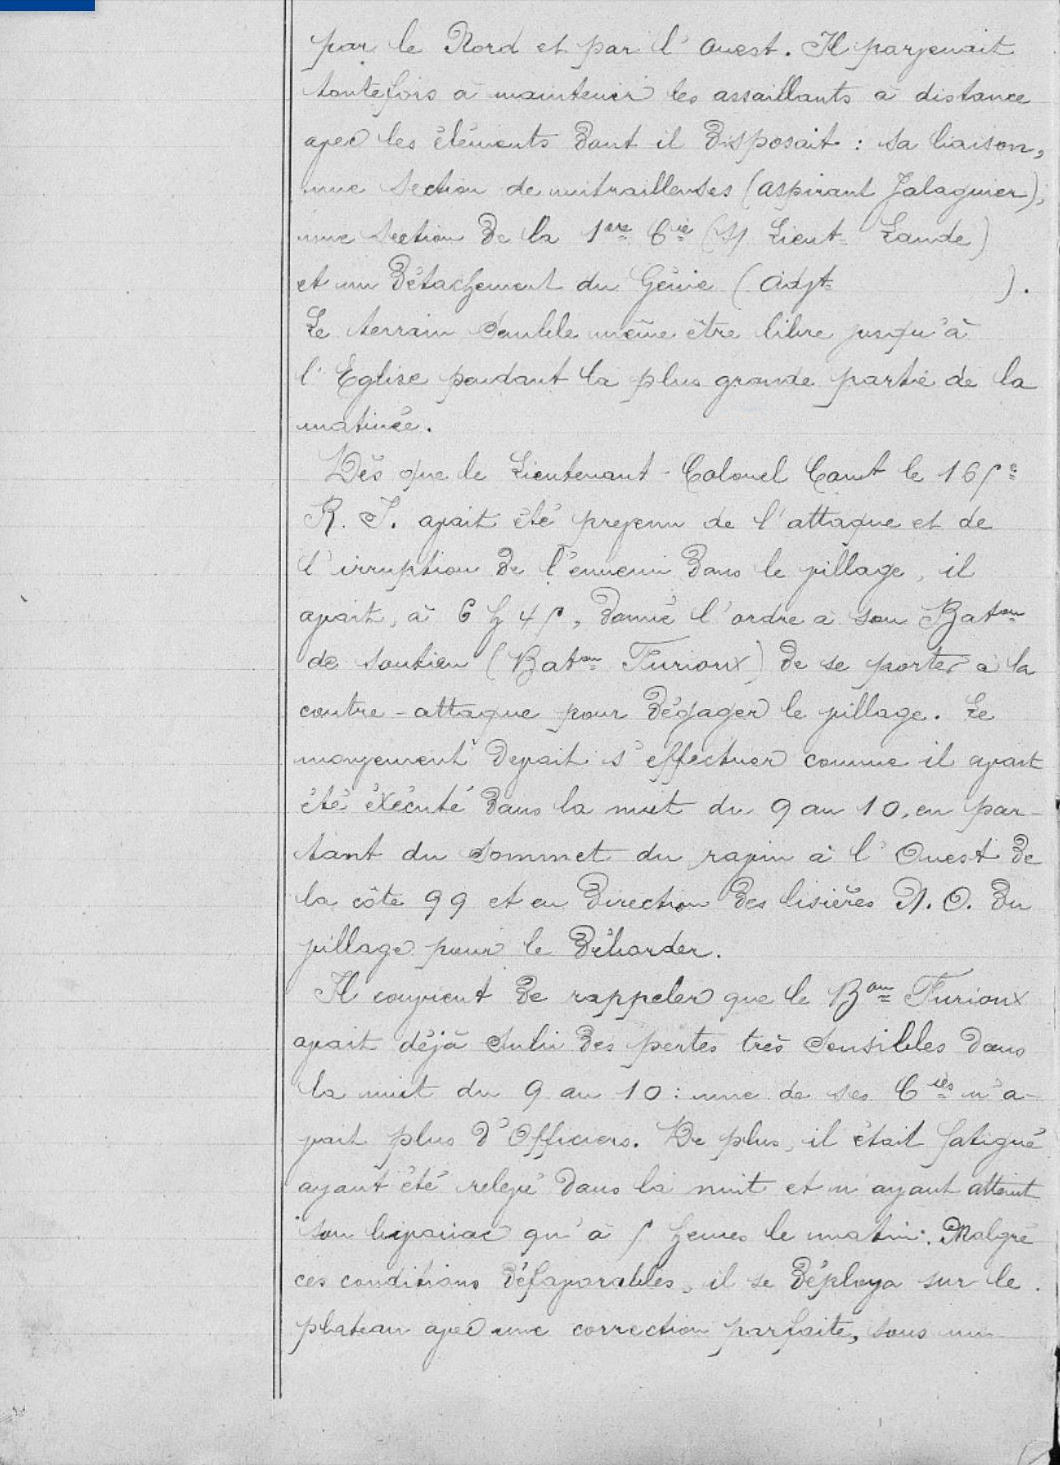 par le Nord et par l'Ouest. Il parvenait
toutefois à maintenir les assaillants à distance
avec les éléments dont il disposait : sa liaison,
une section de mitrailleuses (aspirant Jalaguier),
une section de la 1ère Cie (S/ Lieut. Lande)
et un Détachement du Génie (Adjt. ).
Le terrain semble même être libre jusqu'à
l'Eglise pendant la plus grande partie de la
matinée.
Dès que le Lieutenant-Colonel Comt le 165e
R. I. avait été prévenu de l'attaque et de
l'irruption de l'ennemi dans le village, il
avait, à 6 h 45, donné l'ordre à son Baton
de soutien (Baton Furioux) de se porter à la
contre-attaque pour dégager le village. Le
mouvement devait s'effectuer comme il avait
été éxécuté dans la nuit du 9 au 10, en par-
tant du sommet du ravin à l'Ouest de
la côte 99 et en direction des lisières N. O. du
village pour le déborder.
Il convient de rappeler que le Bon Furioux
avait déjà subi des pertes très sensibles dans
la nuit du 9 au 10 : une de ses Cies n'a-
vait plus d'Officiers. De plus, il était fatigué
ayant été relevé dans la nuit et n'ayant atteint
son bivouac qu'à 5 heures le matin. Malgré
ces conditions défavorables, il se déploya sur le
plateau avec une correction parfaite, sous un